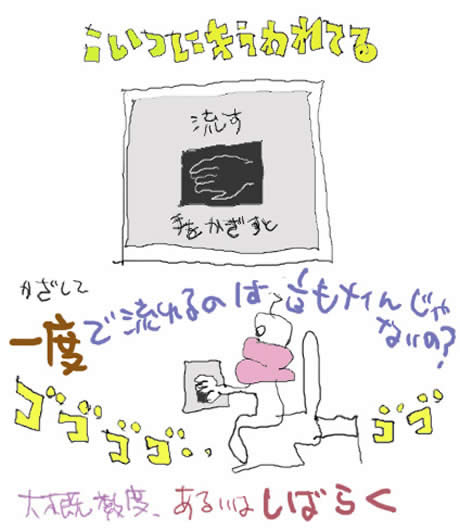 こいつにきらわれてる
流す
手をかざすと
かざして
一度で流れるのは
ないの?
ゴゴゴゴゴ‥
ゴゴ
大概数度、あるいはしばらく